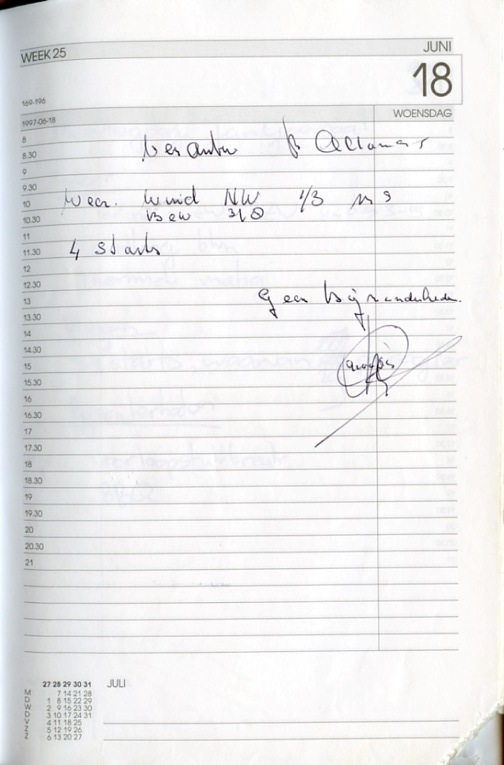 WEEK 25 JUNI
18
169-196
WOENSDAG
1997-06-18
8
8.30
9
9.30
10 Weer. Wind NW 1/3 m s
10.30 Bew 3/8
11
11.30 4 Starts
12
12.30
13 Geen bijzonderheden.
13.30
14
14.30
15
15.30
16
16.30
17
17.30
18
18.30
19
19.30
20
20.30
21
27 28 29 30 31 JULI
M 7 14 21 28
D 1 8 15 22 29
W 2 9 16 23 30
D 3 10 17 24 31
V 4 11 18 25
Z 5 12 19 26
Z 6 13 20 27